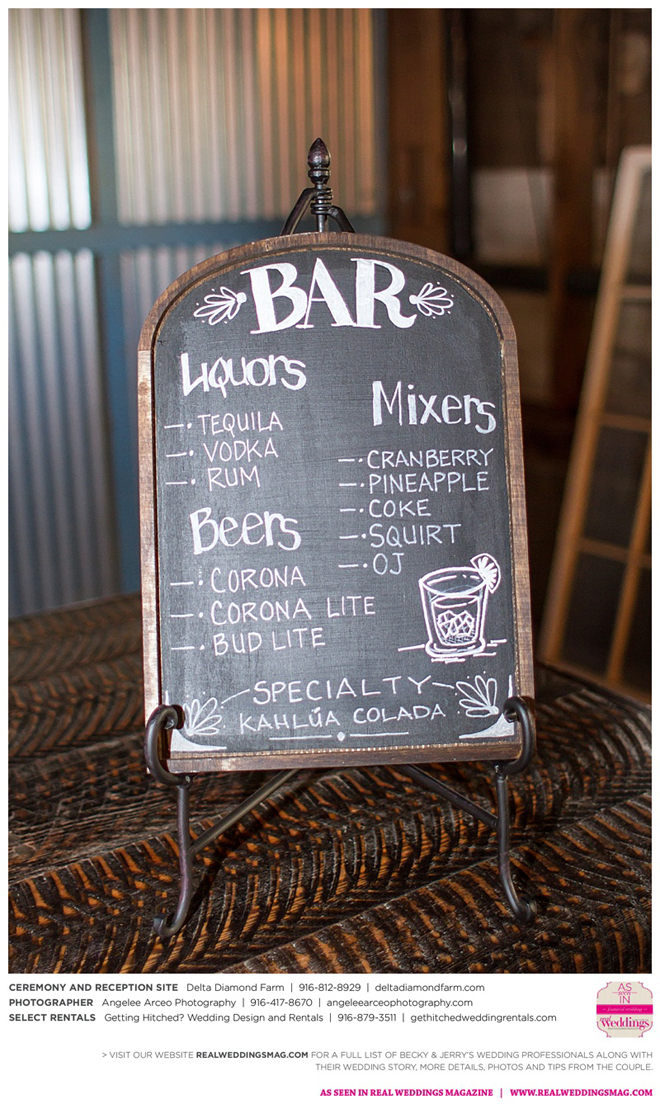 BAR
Liquors
—• TEQUILA
—• VODKA
—• RUM
Beers
—• CORONA
—• CORONA LITE
—• BUD LITE
Mixers
—• CRANBERRY
—• PINEAPPLE
—• COKE
—• SQUIRT
—• OJ
SPECIALTY
KAHLÚA COLADA
CEREMONY AND RECEPTION SITE Delta Diamond Farm | 916-812-8929 | deltadiamondfarm.com
PHOTOGRAPHER Angelee Arceo Photography | 916-417-8670 | angeleearceophotography.com
SELECT RENTALS Getting Hitched? Wedding Design and Rentals | 916-879-3511 | gethitchedweddingrentals.com
AS
seen
IN
real
Weddings
> VISIT OUR WEBSITE REALWEDDINGSMAG.COM FOR A FULL LIST OF BECKY & JERRY'S WEDDING PROFESSIONALS ALONG WITH
THEIR WEDDING STORY, MORE DETAILS, PHOTOS AND TIPS FROM THE COUPLE.
AS SEEN IN REAL WEDDINGS MAGAZINE | WWW.REALWEDDINGSMAG.COM